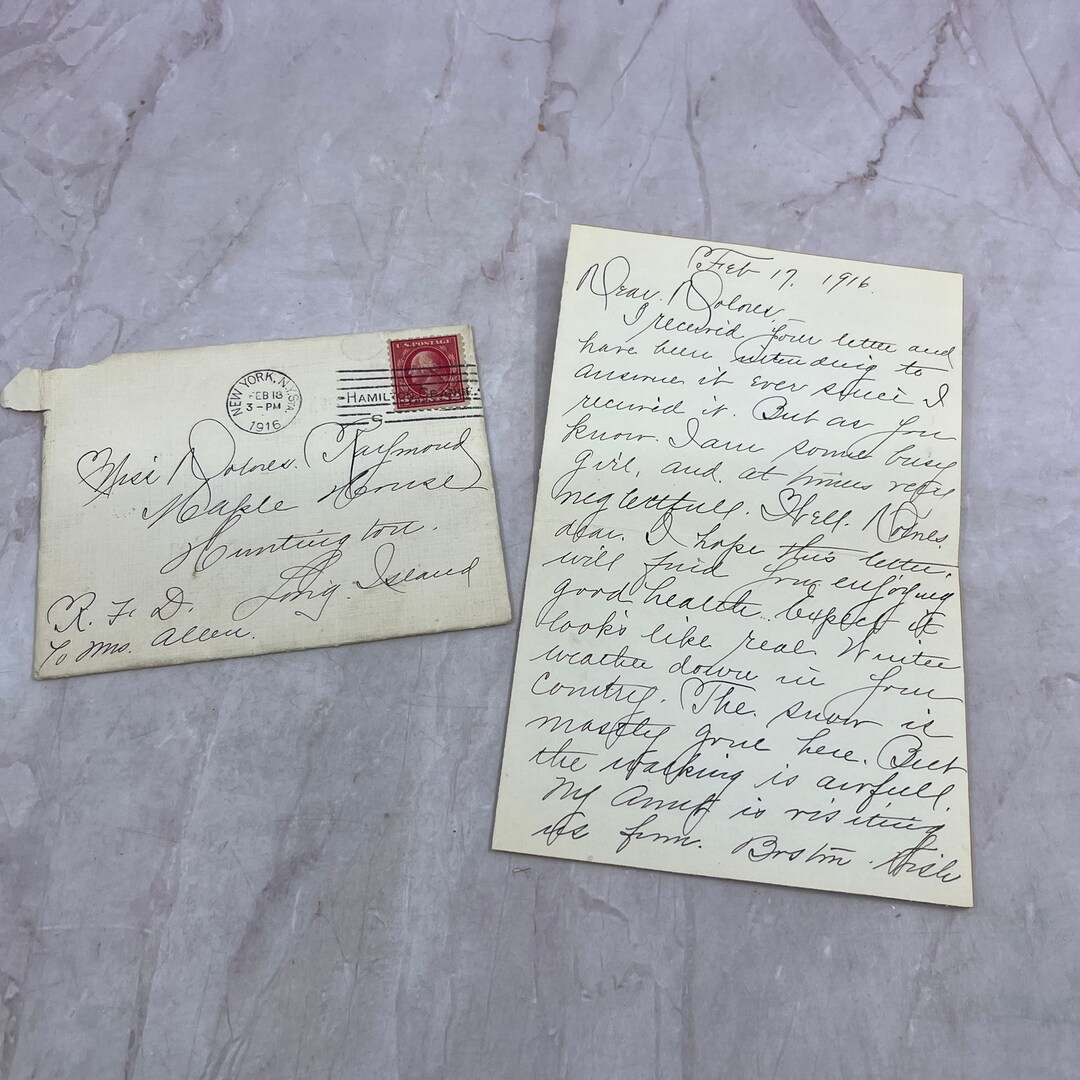 NEW YORK, N.Y. STA
FEB 18
3-PM
1916
U.S. POSTAGE
HAMILTON GRANGE
STA.
Miss Dolores. Raymond
Maple House
Huntington.
Long. Island
R. F. D.
℅ Mrs. Allen.
Feb 17, 1916.
Dear. Dolores,
I received your letter and
have been intending to
answer it ever since I
received it. But as you
know. I am some busy
girl, and. at times very
neglectfull. Well. Dolores.
dear. I hope this letter.
will find you enjoying
good health. Expect it
looks like real Winter
weather down in your
country. The. snow is
mostly gone here. But
the walking is airfull.
My Aunt is visiting
us from. Boston. Wish